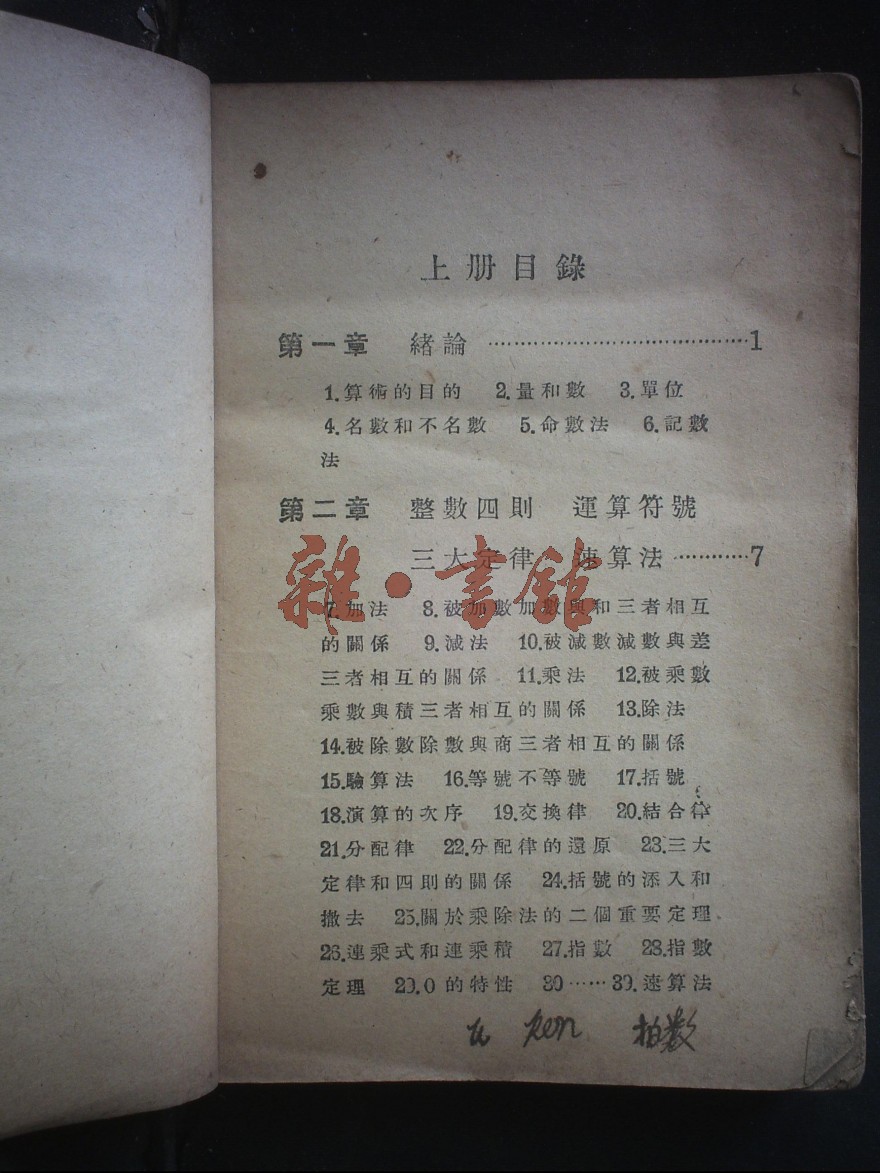 上册目錄
第一章 緒論 ……………………………… 1
1.算術的目的 2.量和數 3.單位
4.名數和不名數 5.命數法 6.記數
法
第二章 整數四則 運算符號
三大定律 速算法 ………… 7
雜·書舘
7.加法 8.被加數加數與和三者相互
的關係 9.減法 10.被減數減數與差
三者相互的關係 11.乘法 12.被乘數
乘數與積三者相互的關係 13.除法
14.被除數除數與商三者相互的關係
15.驗算法 16.等號不等號 17.括號
18.演算的次序 19.交換律 20.結合律
21.分配律 22.分配律的還原 23.三大
定律和四則的關係 24.括號的添入和
撤去 25.關於乘除法的二個重要定理
26.連乘式和連乘積 27.指數 28.指數
定理 29.0的特性 30……39.速算法